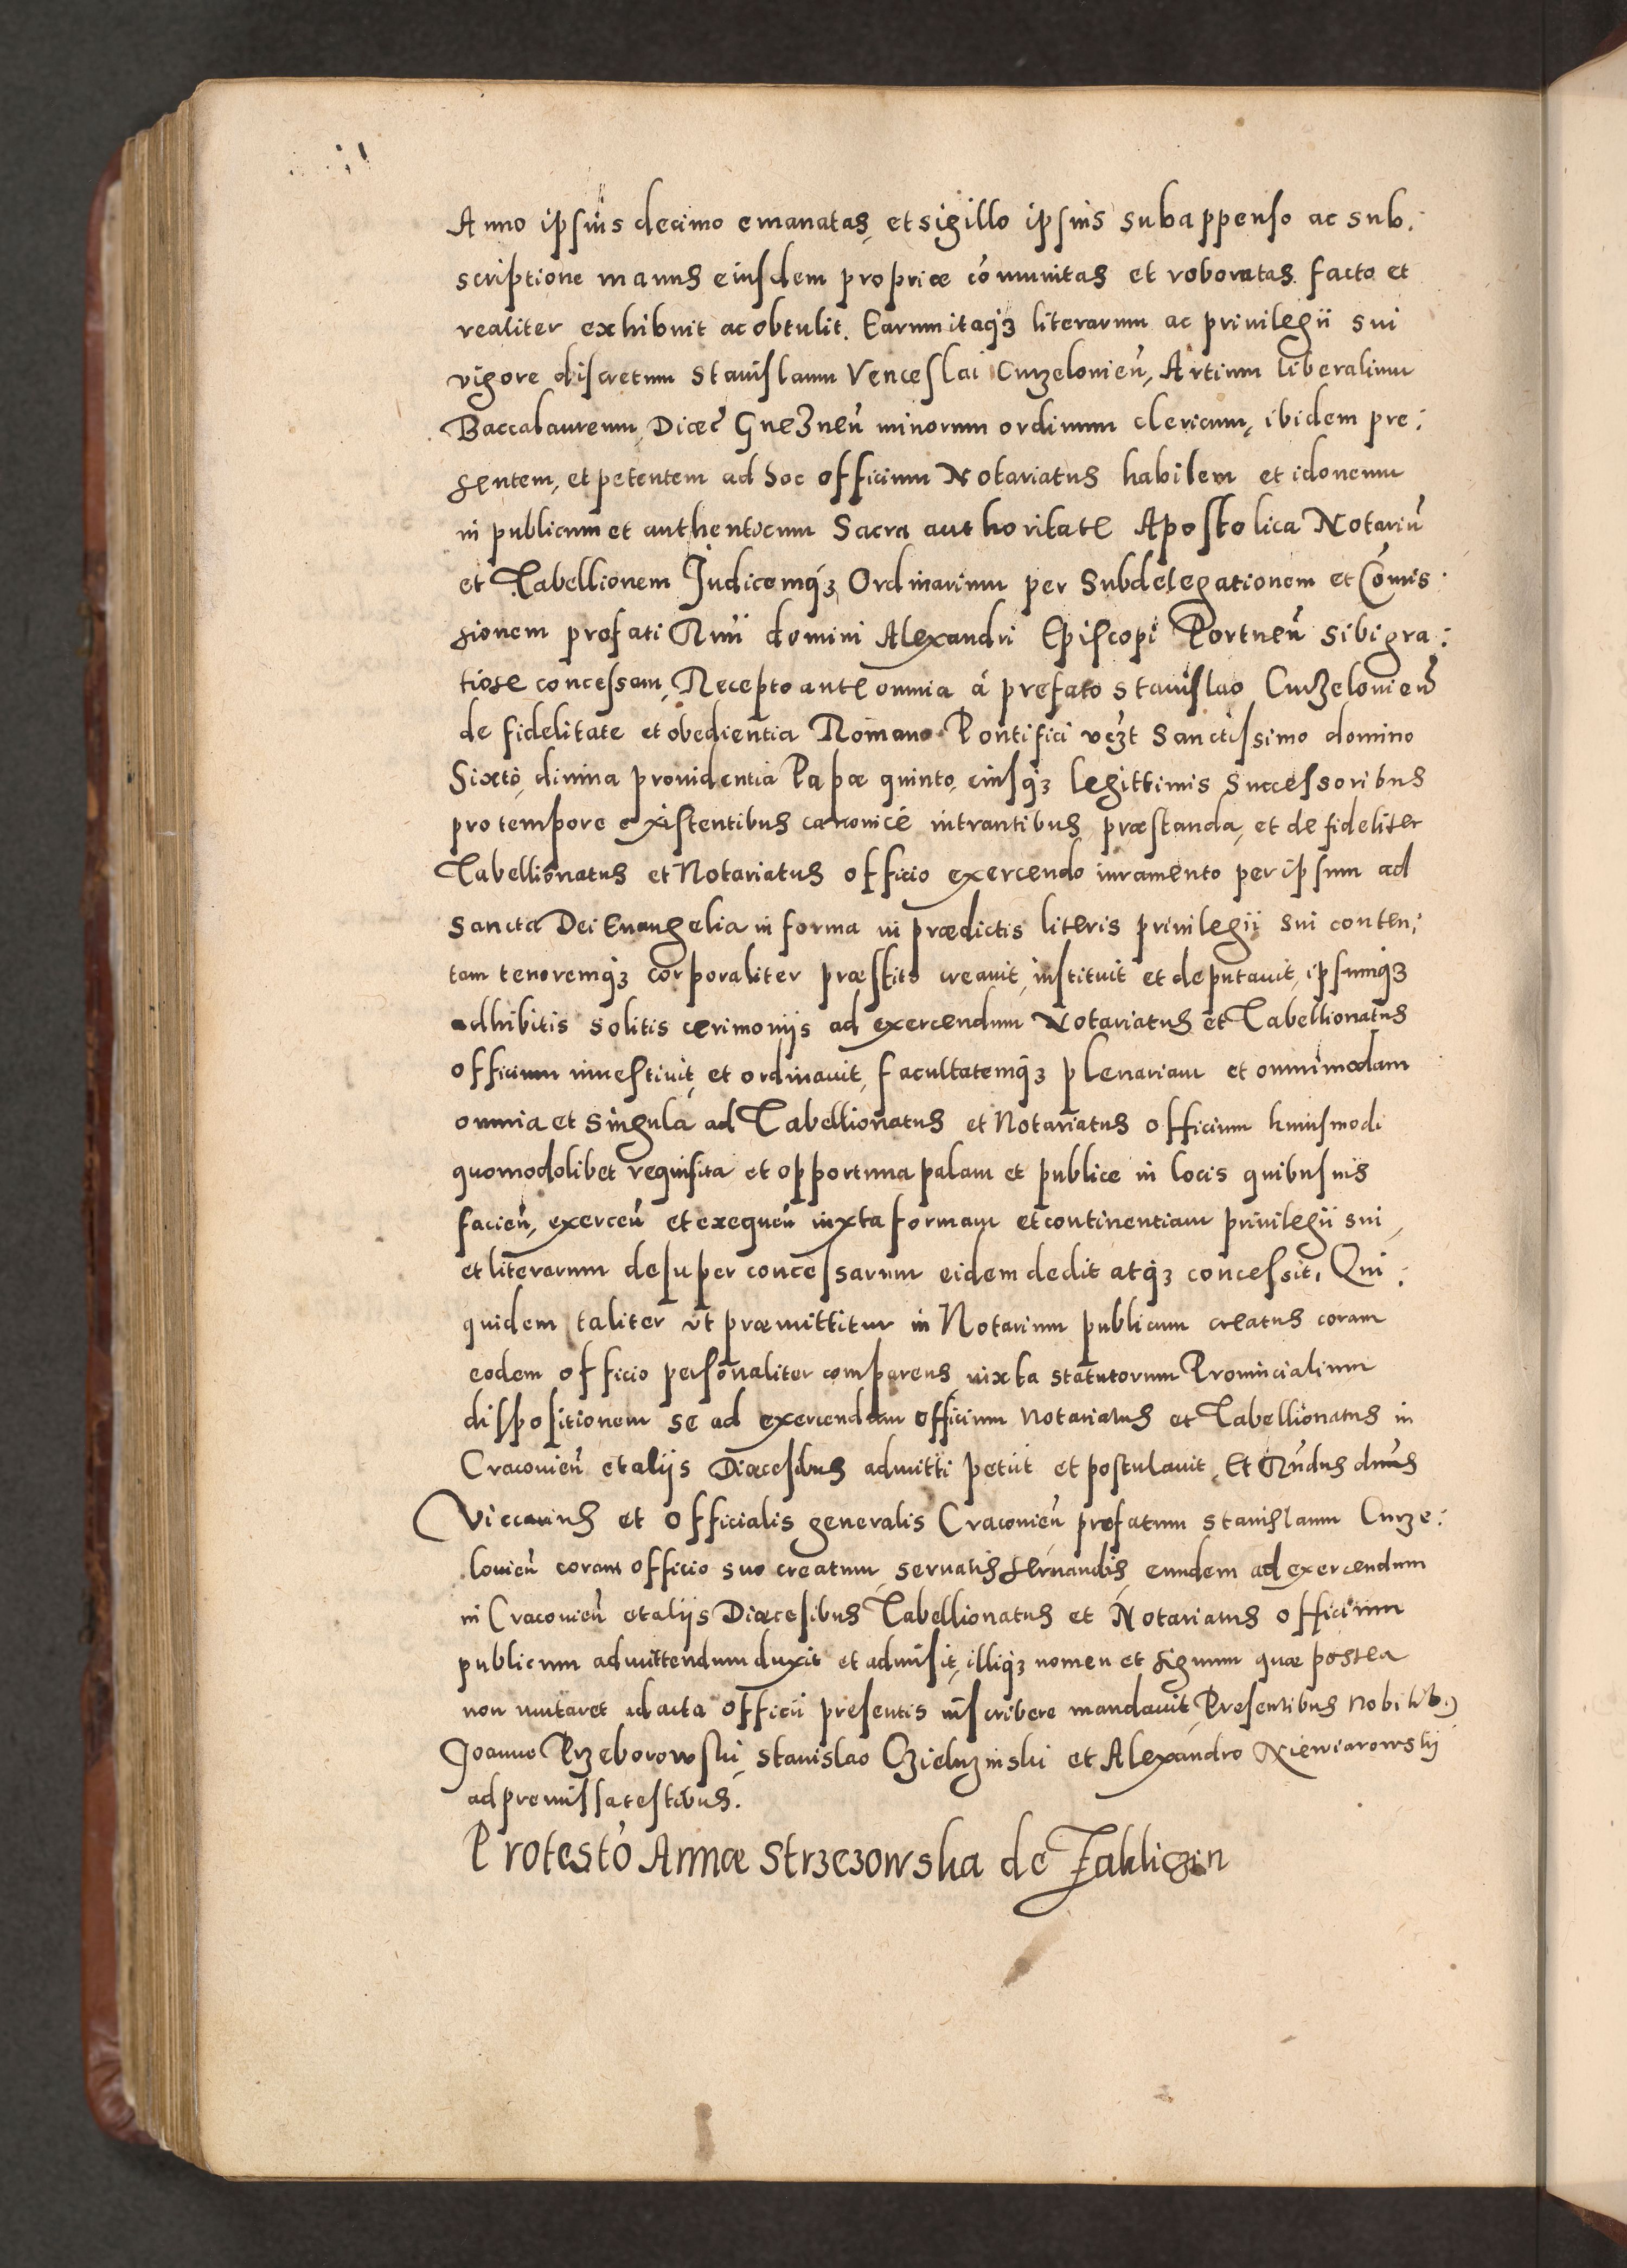 Anno ipsius decimo emanatas, et sigillo ipsius subappenso ac sub:
scriptione manus eiusdem propriæ cōmunitas et roboratas facto et
realiter exhibuit ac obtulit. Earum itaqȝ literarum ac priuilegii sui
vigore discretum Stanislaum Venceslai Curzelouien̄, Artium liberalium
Baccalaureum, Diœc̄ Gneznen̄ minorum ordinum clericum, ibidem pre:
sentem, et petentem ad hoc officium Notariatus habilem et idoneum
in publicum et authenticum Sacra authoritate Apostolica Notariū
et Tabellionem Judicemqȝ Ordinarium per Subdelegationem et Cōmis:
sionem prefati Rm̄i domini Alexandri Episcopi Portuen̄ sibi gra:
tiose concessam, Recepto ante omnia á prefato Stanislao Curzelouien̄
de fidelitate et obedientia Romano Pontifici vczt Sanctissimo domino
Sixto, diuina prouidentia Papæ quinto, eiusqȝ legittimis Successoribus
pro tempore existentibus canonicé intrantibus præstanda, et de fideliter
Tabellionatus et Notariatus officio exercendo iuramento per ipsum ad
Sancta Dei Euangelia in forma in prædictis literis priuilegii sui conten:
tam tenoremqȝ corporaliter præstito creauit, instituit et deputauit, ipsumqȝ
adhibitis solitis cerimoniis ad exercendum Notariatus et Tabellionatus
officium inuestiuit, et ordinauit, facultatemqȝ plenariam et omnimodam
omnia et singula ad Tabellionatus et Notariatus officium huiusmodi
quomodolibet requisita et opportuna palam et publice in locis quibusuis
facien̄, exercen̄ et exequen̄ iuxta formam et continentiam priuilegii sui,
et literarum desuper concessarum eidem dedit atqȝ concessit. Qui:
quidem taliter vt præmittitur in Notarium publicum creatus coram
eodem officio personaliter comparens, iuxta statutorum Prouincialium
dispositionem se ad exercendum officium Notariatus et Tabellionatus in
Cracouien̄ et aliis Diœcesibus admitti petiit et postulauit, Et Rn̄dus dnus
Viccarius et Officialis generalis Cracouien̄ prefatum Stanislaum Curze:
louien̄ coram officio suo creatum, seruatis seruandis, eundem ad exercendum
in Cracouien̄ et aliis Diœcesibus Tabellionatus et Notariatus officium
publicum admittendum duxit et admisit, illiqȝ nomen et signum quæ postea
non mutaret ad acta officii presentis inscribere mandauit, Presentibus Nobilib.
Joanne Przeborowski, Stanislao Czieluzinski et Alexandro Niewiarowskij
ad premissa testibus.
Protesto Annæ Strzezowska de